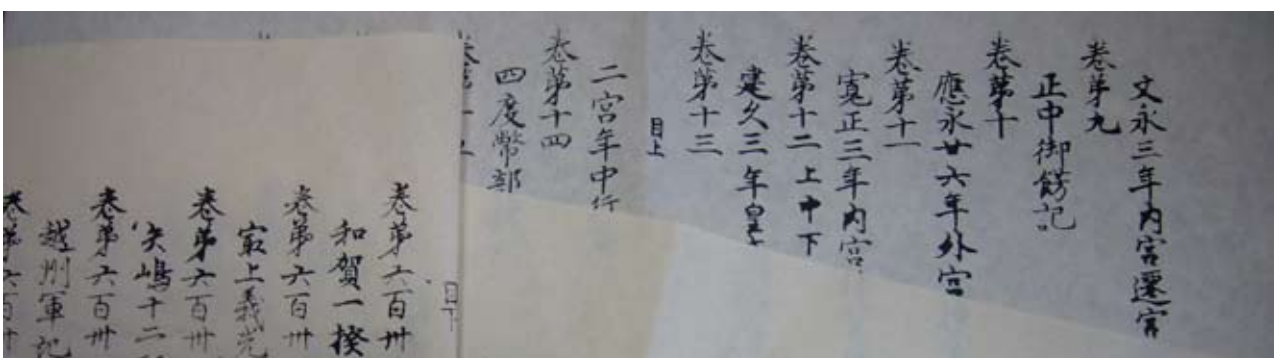 文永三年内宮遷宮
卷第九
正中御餝記
卷第十
應永廿六年外宮
卷第十一
寛正三年内宮
卷第十二 上中下
建久三年皇
卷第十三
目上
二宮年中行
卷第十四
四度幣部
卷第
目下
卷第六百卅
和賀一揆
卷第六百卅
最上義光
卷第六百卅
矢嶋十二
卷第六百卅
越州軍記
卷第六百卅